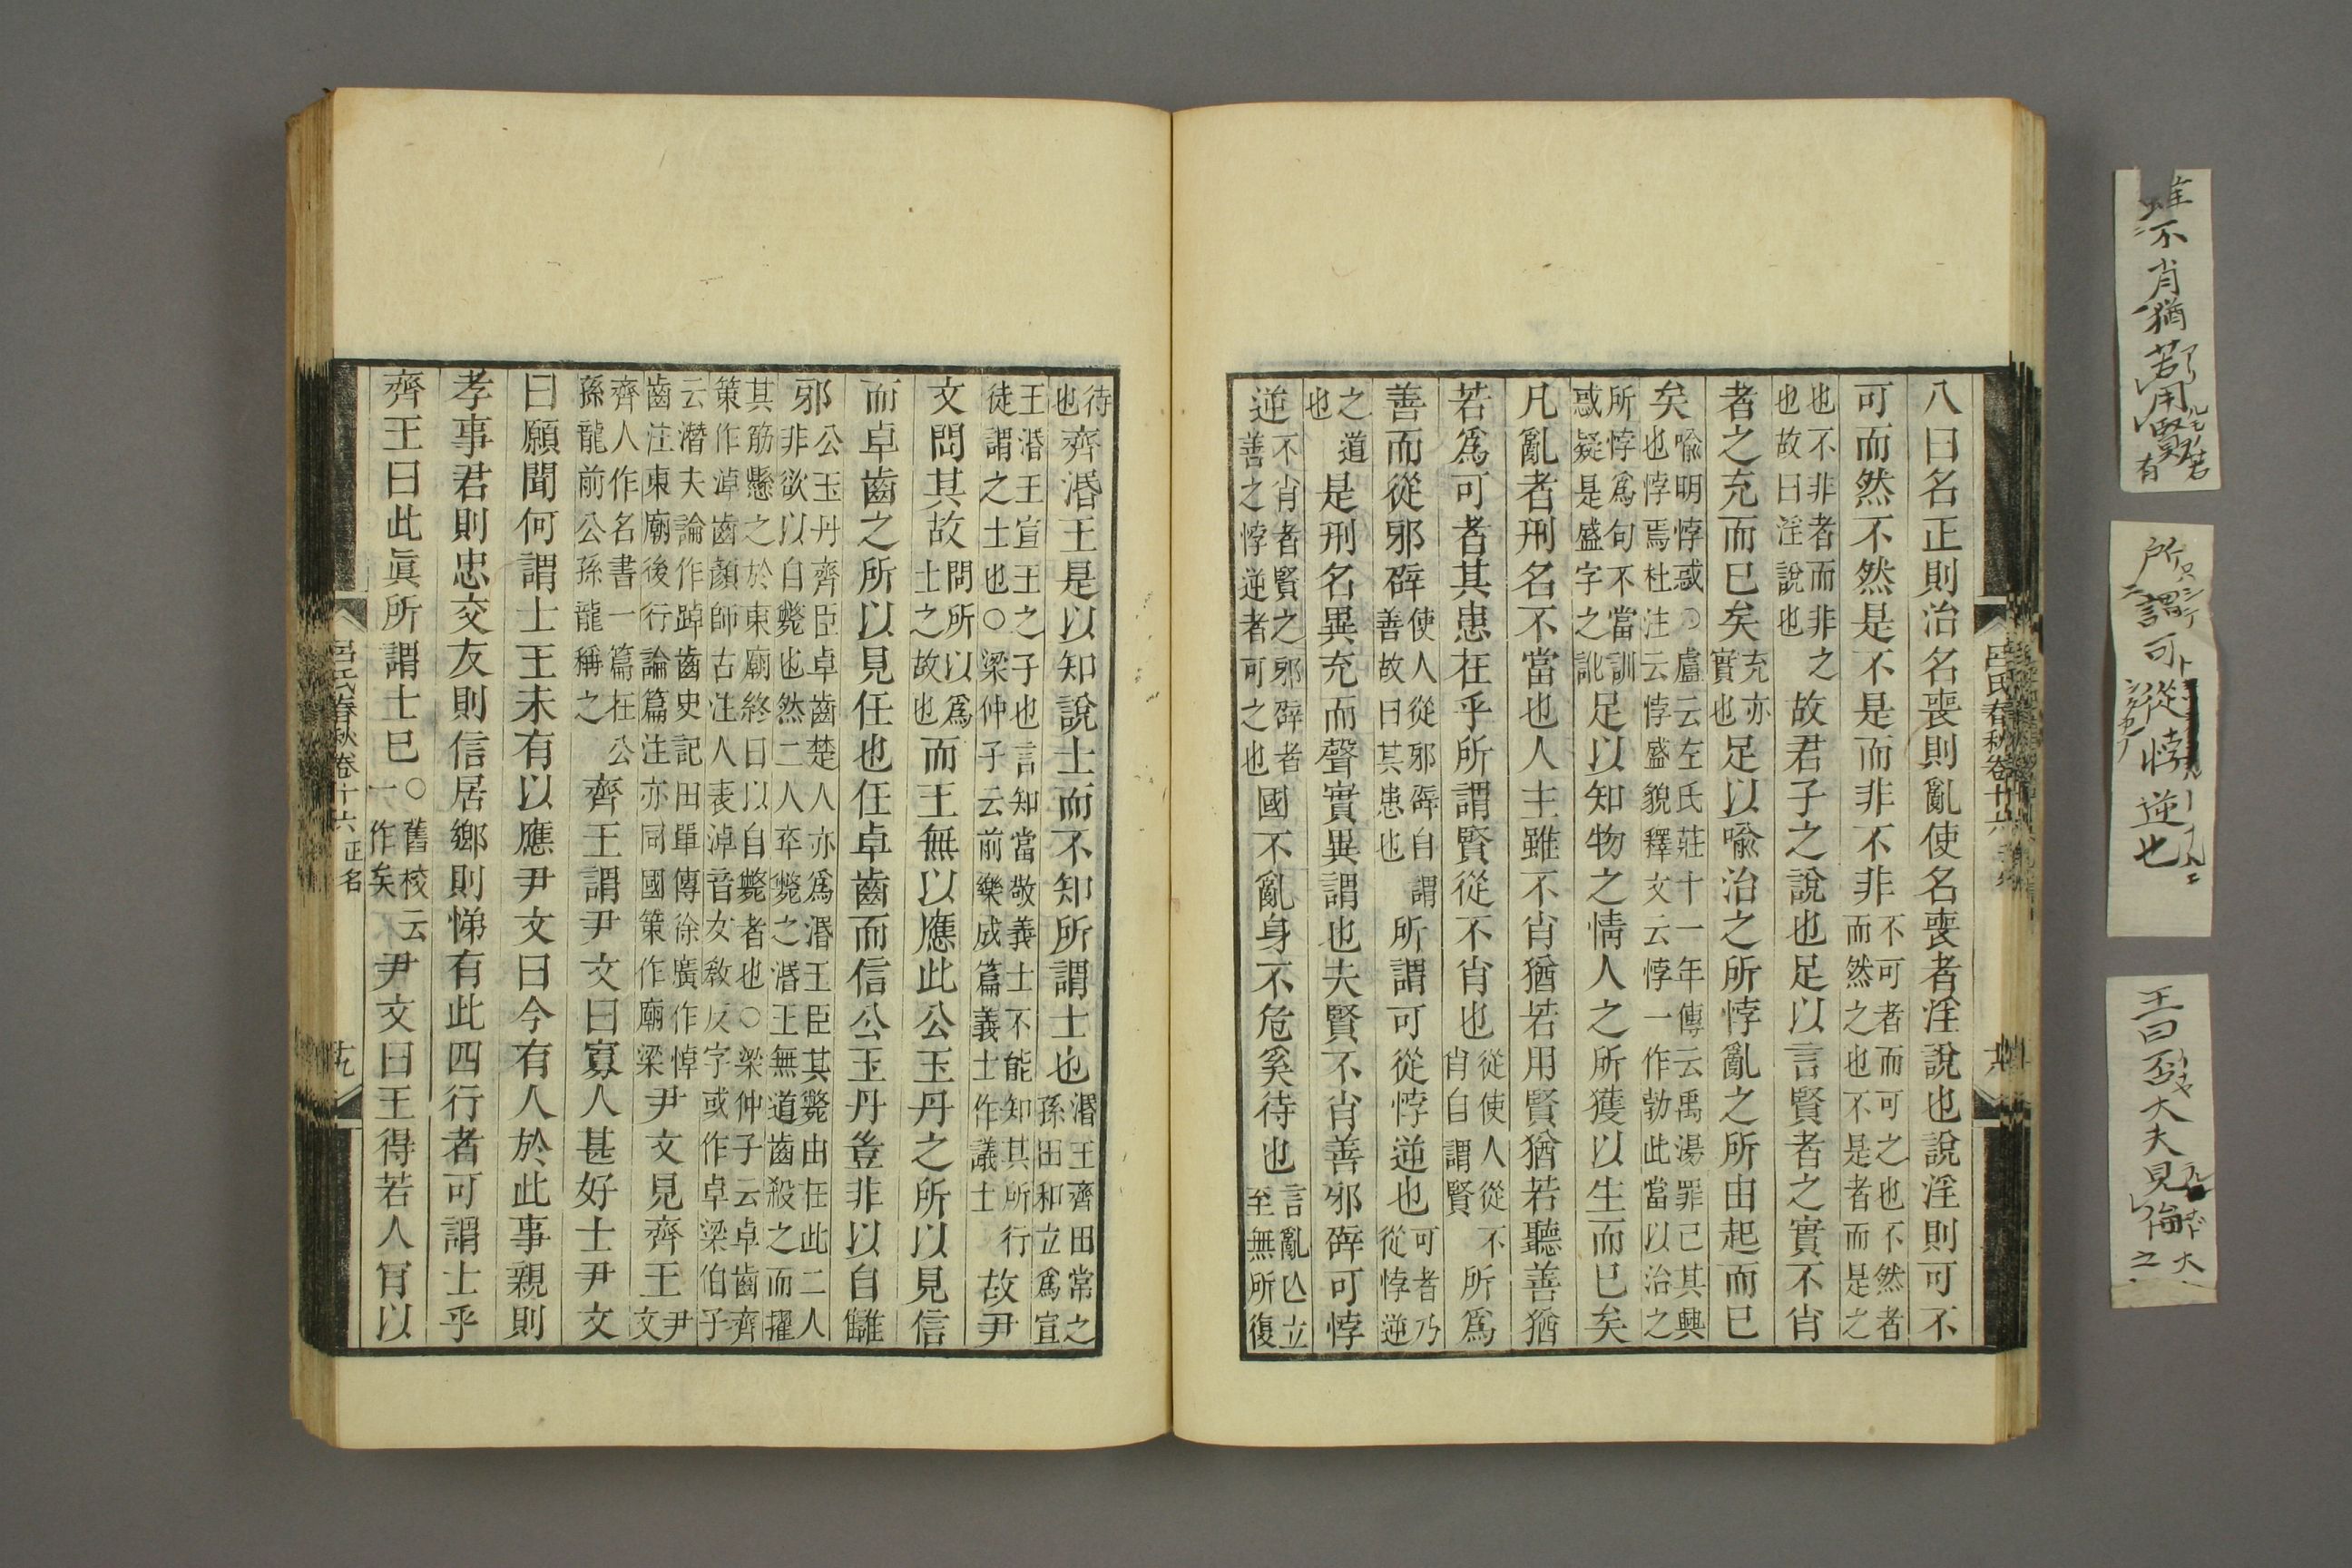 八曰名正則治名喪則亂使名喪者淫說也說淫則可不
可而然不然是不是而非不非
不可者而可之也不然者
而然之也不是者而是之
也不非者而非之
也故曰淫說也
故君子之說也足以言賢者之實不肖
者之充而已矣
充亦
實也
足以喻治之所悖亂之所由起而已
矣
喻明悖惑○盧云左氏莊十一年傳云禹湯罪己其興
也悖焉杜注云悖盛貌釋文云悖一作勃此當以治之
所悖爲句不當訓
惑疑是盛字之訛
足以知物之情人之所獲以生而已矣
凡亂者刑名不當也人主雖不肖猶若用賢猶若聽善猶
若爲可者其患在乎所謂賢從不肖也
從使人從不
肖自謂賢
所爲
善而從邪辟
使人從邪辟自謂
善故曰其患也
所謂可從悖逆也
可者乃
從悖逆
之道
也
是刑名異充而聲實異謂也夫賢不肖善邪辟可悖
逆
不肖者賢之邪辟者
善之悖逆者可之也
國不亂身不危奚待也
言亂亾立
至無所復
待
也
齊湣王是以知說士而不知所謂士也
湣王齊田常之
孫田和立爲宣
王湣王宣王之子也言知當敬義士不能知其所行
徒謂之士也○梁仲子云前樂成篇義士作議士
故尹
文問其故
問所以爲
士之故也
而王無以應此公玉丹之所以見信
而卓齒之所以見任也任卓齒而信公玉丹豈非以自讎
邪
公玉丹齊臣卓齒楚人亦爲湣王臣其斃由在此二人
非欲以自斃也然二人卒斃之湣王無道齒殺之而擢
其筋懸之於東廟終日以自斃者也○梁仲子云卓齒齊
策作淖齒顏師古注人表淖音女敎反字或作卓梁伯子
云潛夫論作踔齒史記田單傳徐廣作悼
齒注東廟後行論篇注亦同國策作廟梁
尹文見齊王
尹
文
齊人作名書一篇在公
孫龍前公孫龍稱之
齊王謂尹文曰寡人甚好士尹文
曰願聞何謂士王未有以應尹文曰今有人於此事親則
孝事君則忠交友則信居鄉則悌有此四行者可謂士乎
齊王曰此眞所謂士已
○舊校云
一作矣
尹文曰王得若人肯以
呂氏春秋卷十六 正名
呂氏春秋卷十六
雖不肖猶若用賢
所謂可從悖逆也
王曰
大夫見侮